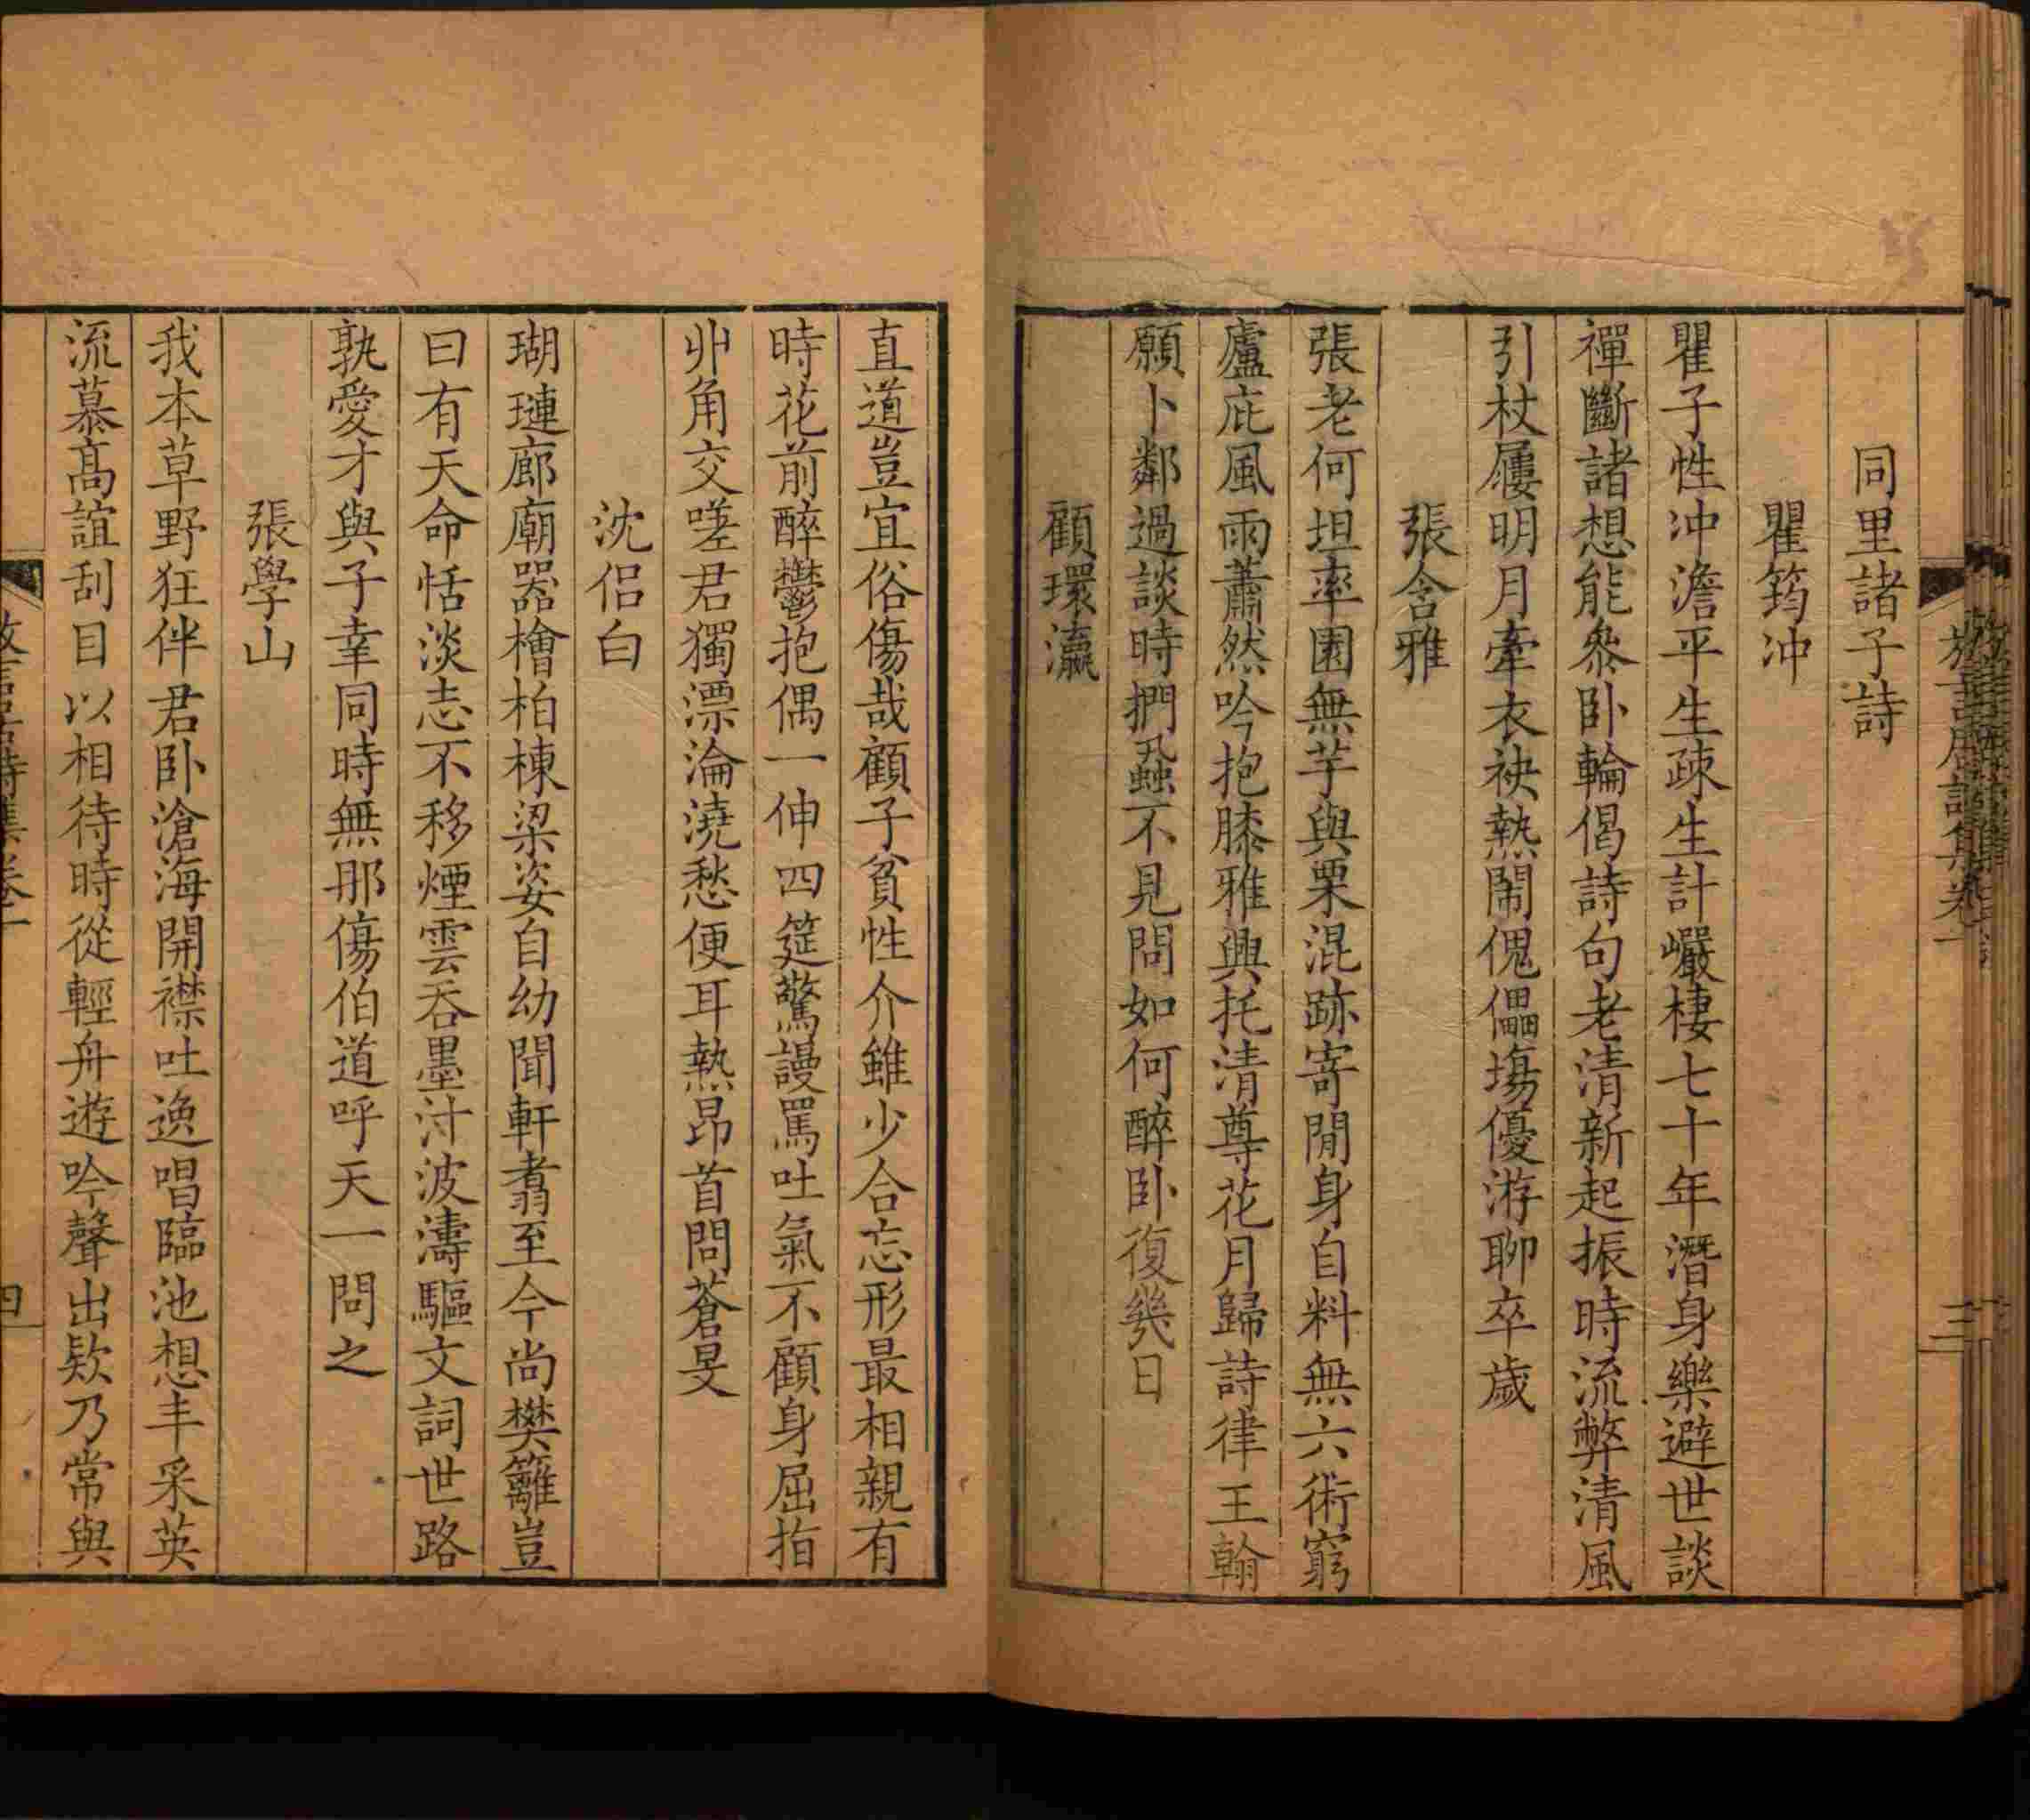 同里諸子詩
瞿筠冲
瞿子性冲澹平生疎生計巗棲七十年潛身樂避世談
禪斷諸想能叅卧輪偈詩句老清新起振時流弊清風
引杖屨明月牽衣袂熱鬧傀儡塲優游聊卒歲
張含雅
張老何坦率園無芋與栗混跡寄閒身自料無六術窮
廬庇風雨蕭然吟抱膝雅興托清尊花月歸詩律王翰
願卜鄰過談時捫蝨不見問如何醉卧復幾日
顧環瀛
直道豈宜俗傷哉顧子貧性介雖少合忘形最相親有
時花前醉鬱抱偶一伸四筵驚謾罵吐氣不顧身屈指
丱角交嗟君獨漂淪澆愁便耳熱昂首問蒼旻
沈侣白
瑚璉廊廟器檜柏棟梁姿自幼聞軒翥至今尚樊籬豈
曰有天命恬淡志不移煙雲吞墨汁波濤驅文詞世路
孰愛才與子幸同時無那傷伯道呼天一問之
張學山
我本草野狂伴君卧滄海開襟吐逸唱臨池想丰采英
流慕高誼刮目以相待時從輕舟遊吟聲出欵乃常與
四
三